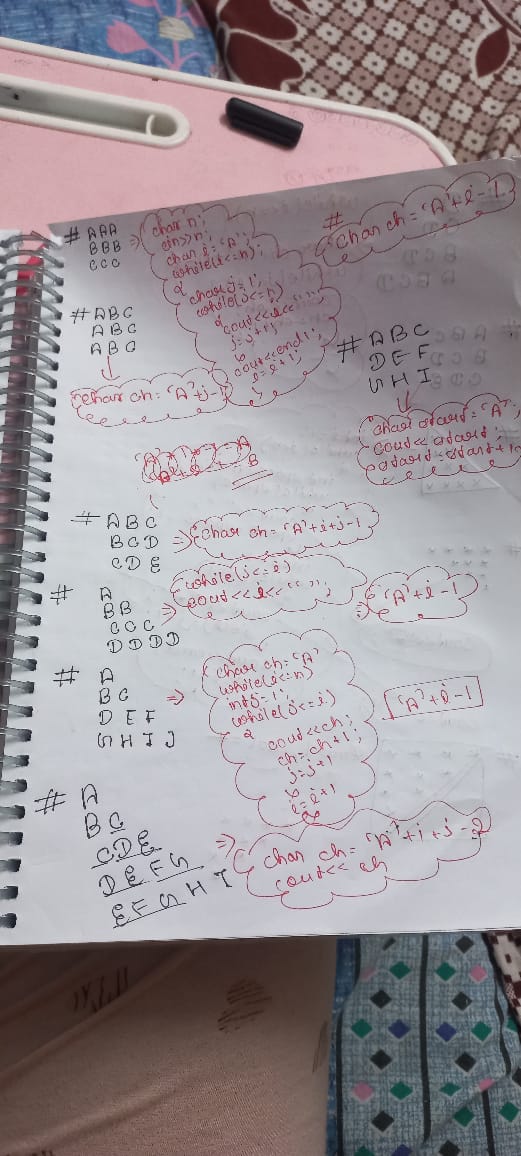 # AAA
BBB
CCC
=>
char n;
cin>>n;
char i='A';
while(i<=n);
{
char j=1;
while(j<=n)
{
cout<<i<<" ";
j=j+1;
}
cout<<endl;
i=i+1;
}
#
char ch = 'A'+i-1
# ABC
ABC
ABC
char ch = 'A'+j-1
# ABC
DEF
GHI
char start='A';
cout<<start;
start=start+1
# ABC
BCD => char ch='A'+i+j-1
CDE
# A
BB
CCC
DDDD
=>
while(j<=i)
cout<<i<<" ";
=> 'A'+i-1
# A
BC
DEF
GHIJ
=>
char ch='A'
while(i<=n)
int j=1;
while(j<=i)
{
cout<<ch;
ch=ch+1;
j=j+1
}
i=i+1
'A'+i-1
# A
BC
CDE
DEFG
EFGHI
=>
char ch='A'+i+j-2
cout<<ch